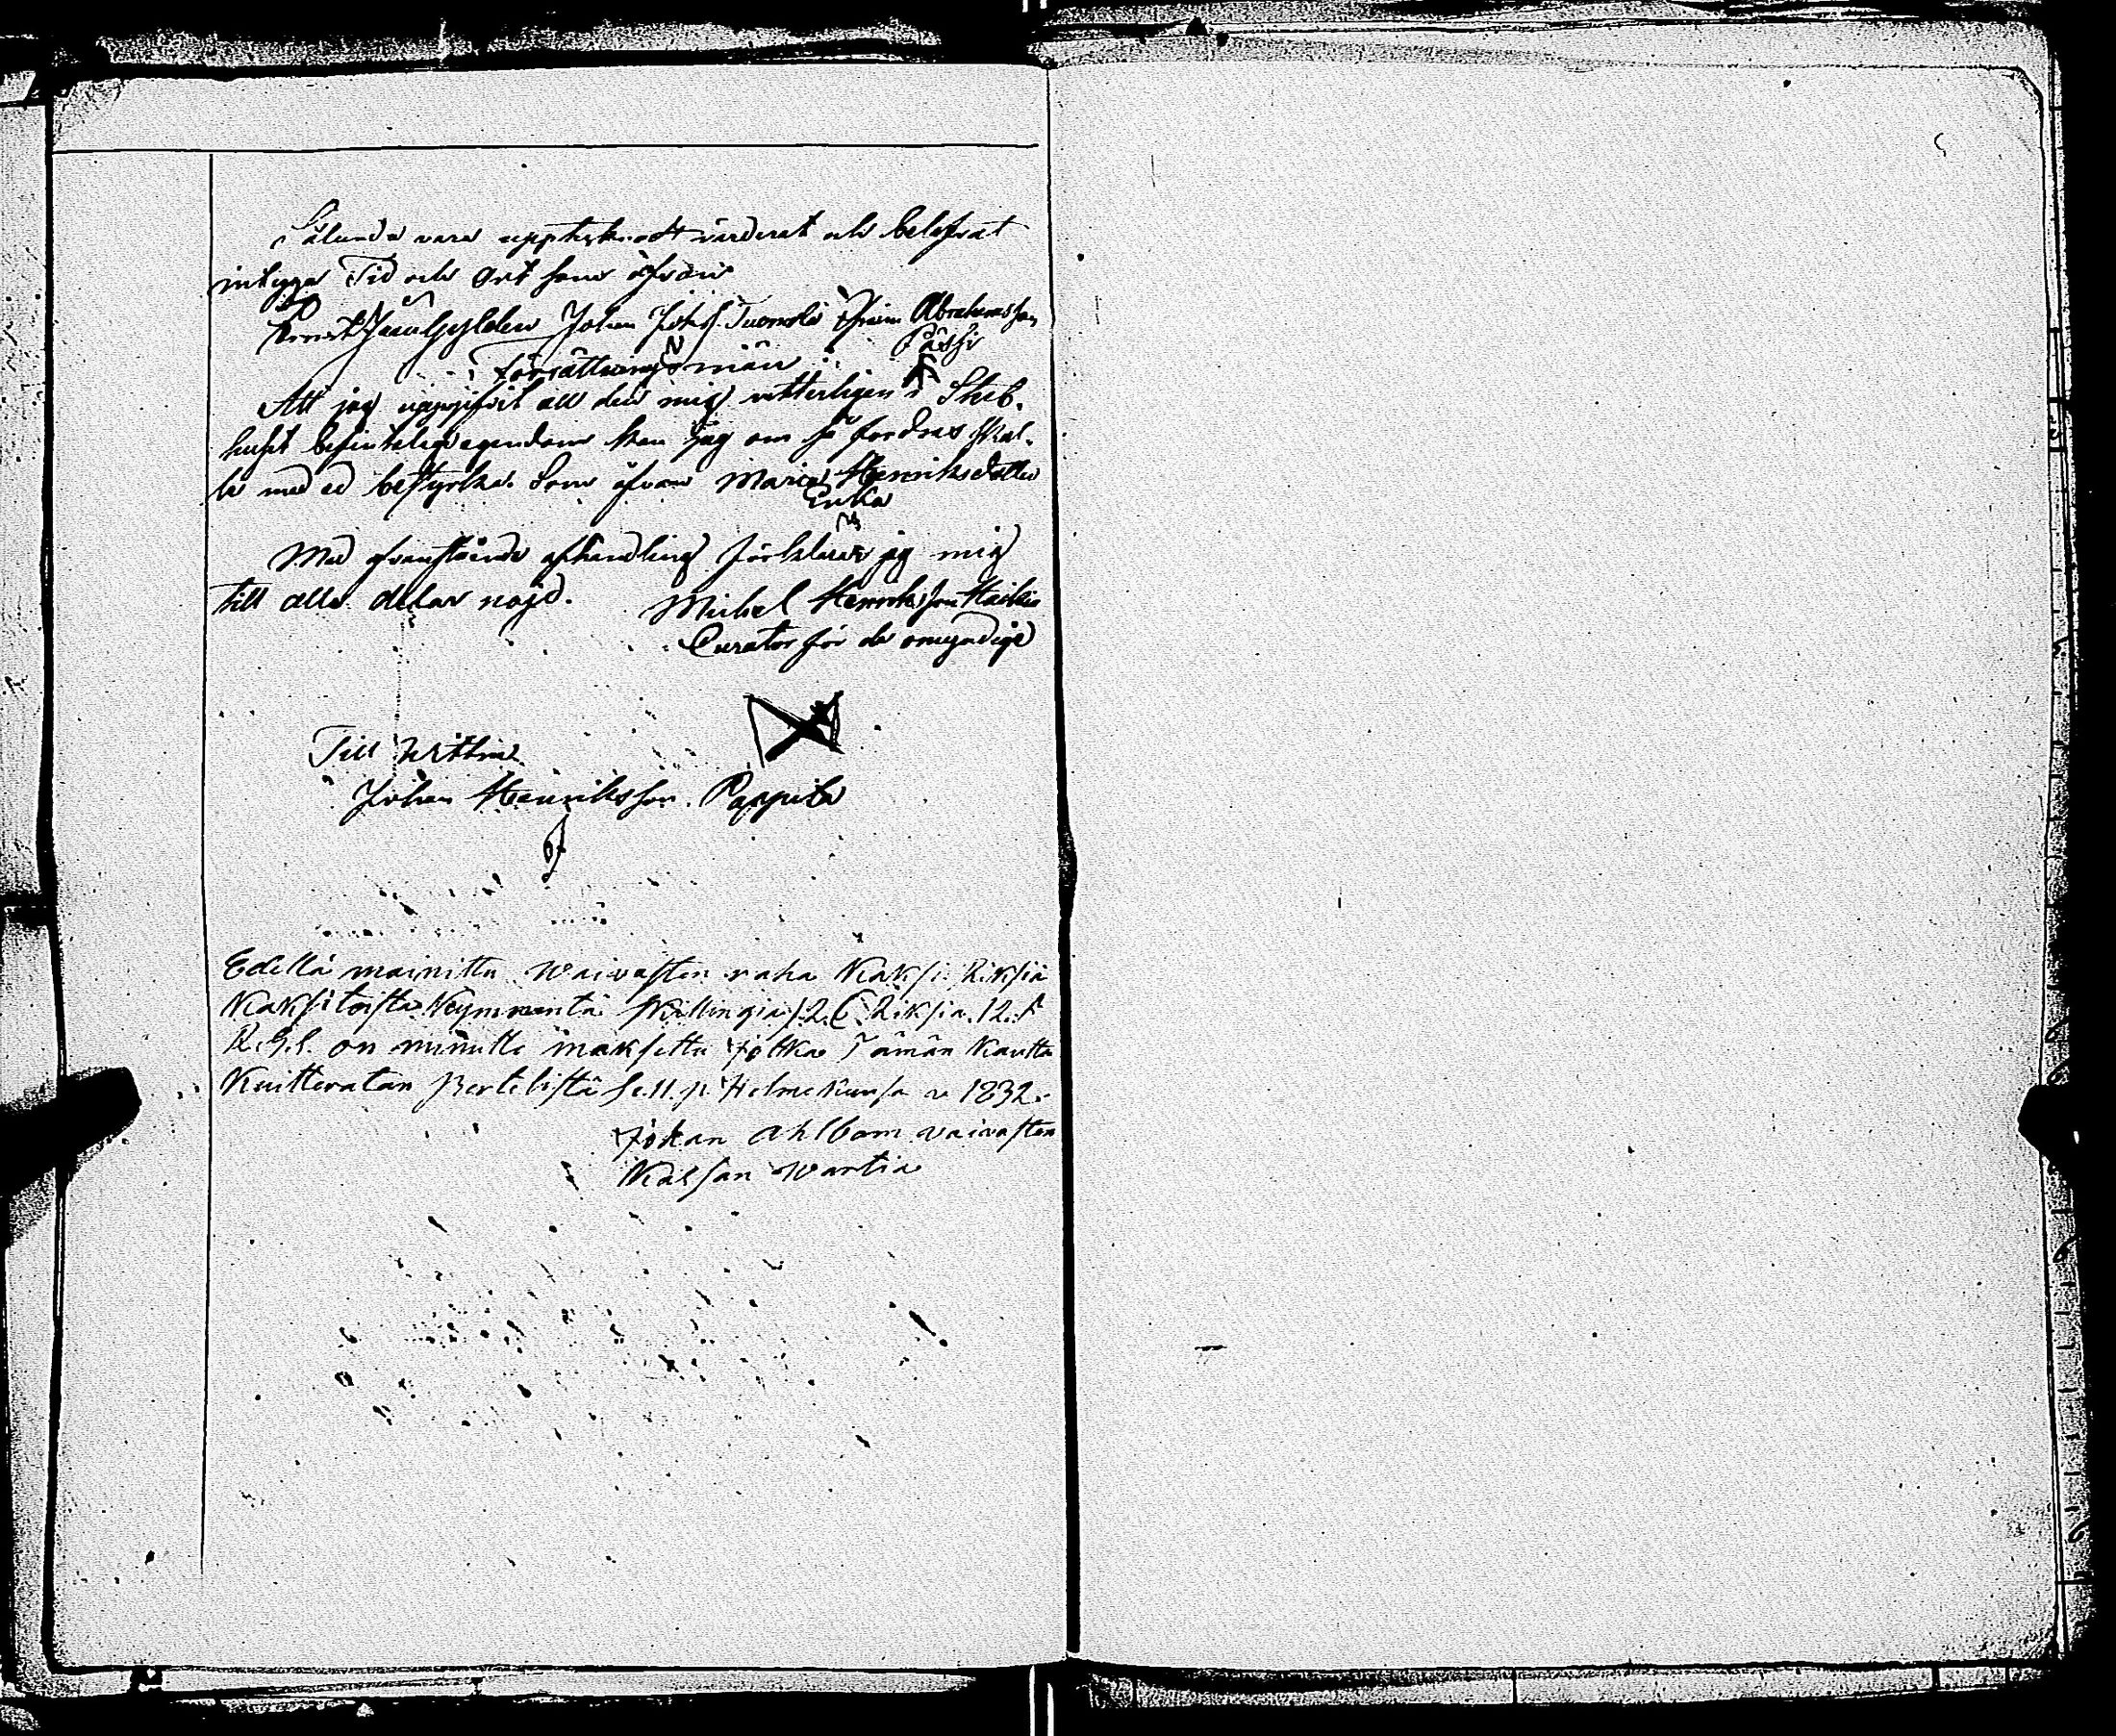 Sålunda vara upptecknadt värderat och belefvat
intyga Tid och Ort som ofvan
Johan Johs. Tuomola Efraim Abrahamsson
Påssi
Förrättnings män
Att jag uppgifvit all den mig vetterligen i Sterb-
huset befinteliga egendom kan jag om så fordras skal-
le med ed bestyrka. Som ofvan Maria Henriksdotter
Enka
Med ofvanstående afhandling förklarar jag mig
till alla delar nöjd. Michel Henriksson
Curator för de omyndige
Till vittne
Johan Henriksson Pappila
Edellä mainittu waivasten raha Kaksi Riksiä
Kaksitoista Kymmentä Killingiä 2 Riksia 12
R.G.s. on minulle maksettu jotka Tämän Kautta
Kuitteratan Bertelistä se 11. p. Helmekuusa v 1832.
Johan Ahlbom vaivasten
Kassan Wartia